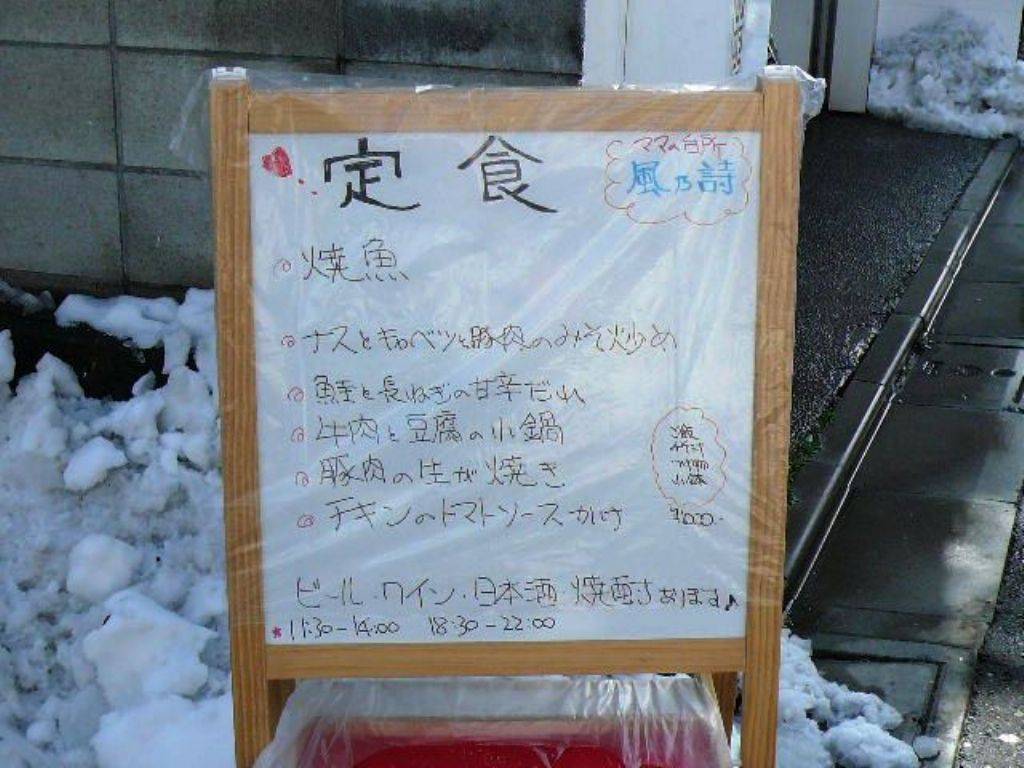 定食
ママの台所
風乃詩
焼魚
ナスとキャベツと豚肉のみそ炒め
鮭と長ねぎの甘辛だれ
牛肉と豆腐の小鍋
豚肉の生が焼き
チキンのトマトソースかけ
ご飯
みそ汁
小鉢
¥1000-
ビール・ワイン・日本酒 焼酎あります♪
11:30-14:00 18:30-22:00